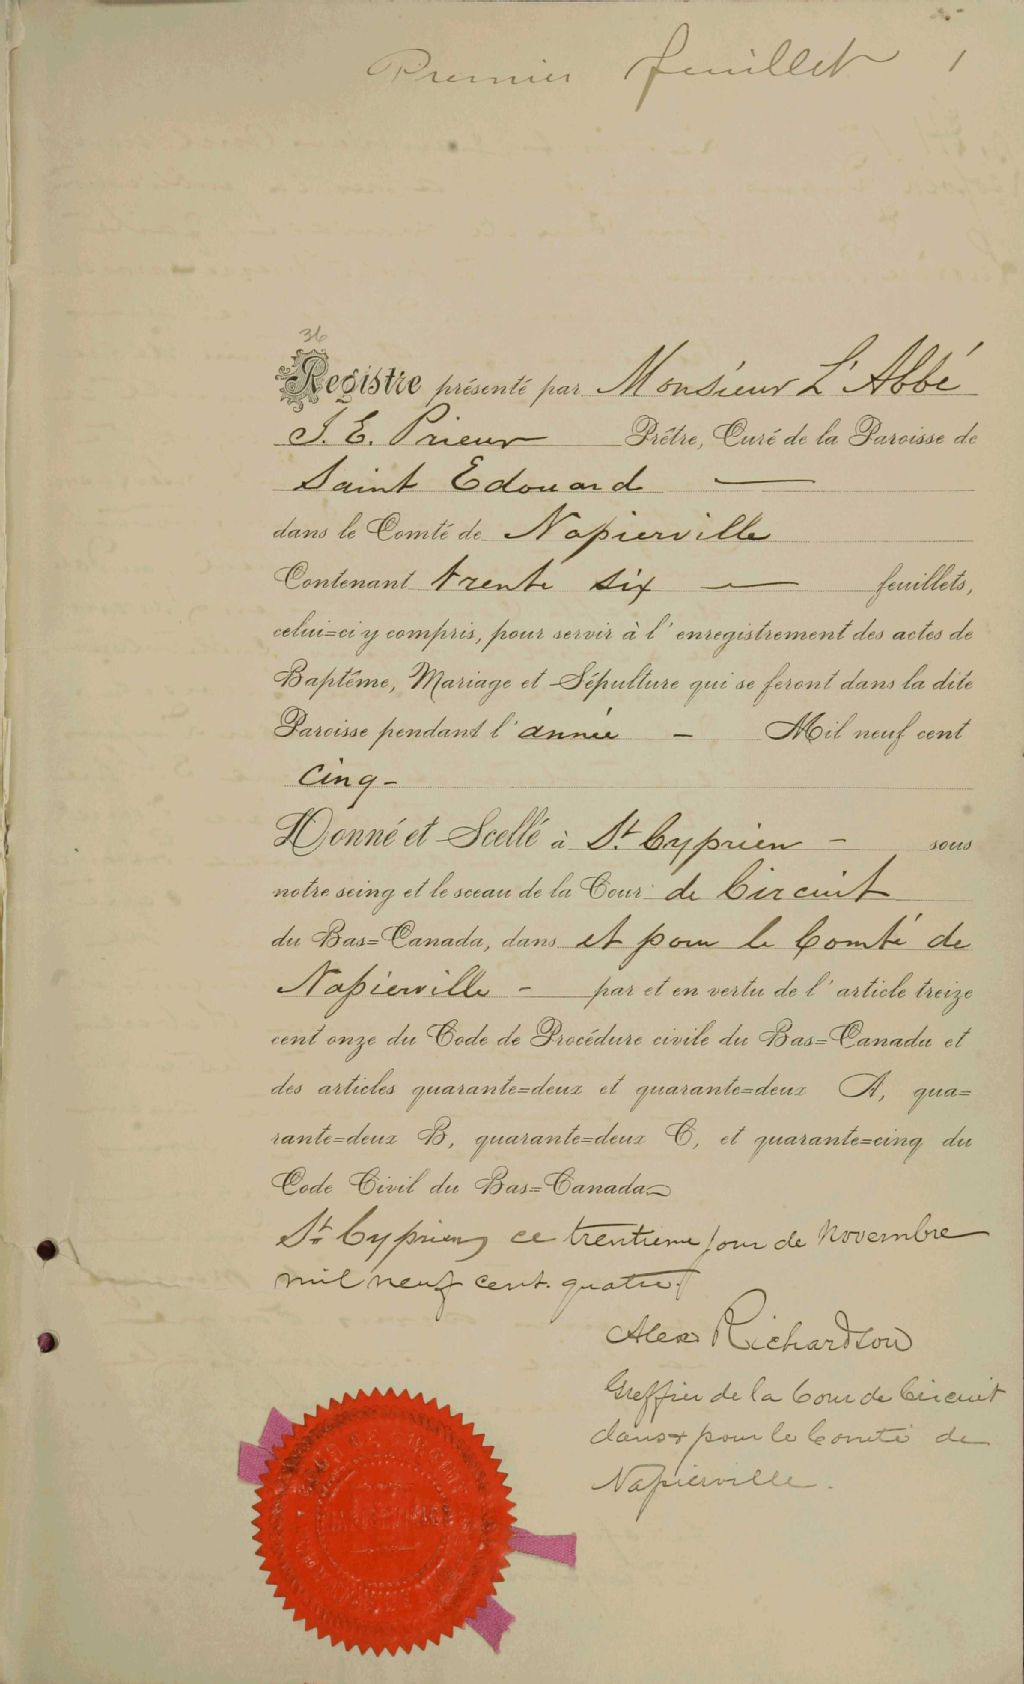 Premier feuillet 1
36
Registre présenté par Monsieur L'Abbé
J. E. Prieur Prêtre, Curé de la Paroisse de
Saint Edouard —
dans le Comté de Napierville
Contenant trente six — feuillets,
celui=ci y compris, pour servir à l'enregistrement des actes de
Baptême, Mariage et Sépulture qui se feront dans la dite
Paroisse pendant l'année — Mil neuf cent
cinq -
Donné et Scellé à St. Cyprien - sous
notre seing et le sceau de la Cour de Circuit
du Bas=Canada, dans et pour le Comté de
Napierville - par et en vertu de l'article treize
cent onze du Code de Procédure civile du Bas=Canada et
des articles quarante=deux et quarante=deux A, qua=
rante=deux B, quarante=deux C, et quarante=cinq du
Code Civil du Bas=Canada
St. Cyprien, ce trentieme jour de Novembre
mil neuf cent quatre.
Alex Richardson
Greffier de la Cour de Circuit
dans & pour le Comté de
Napierville.